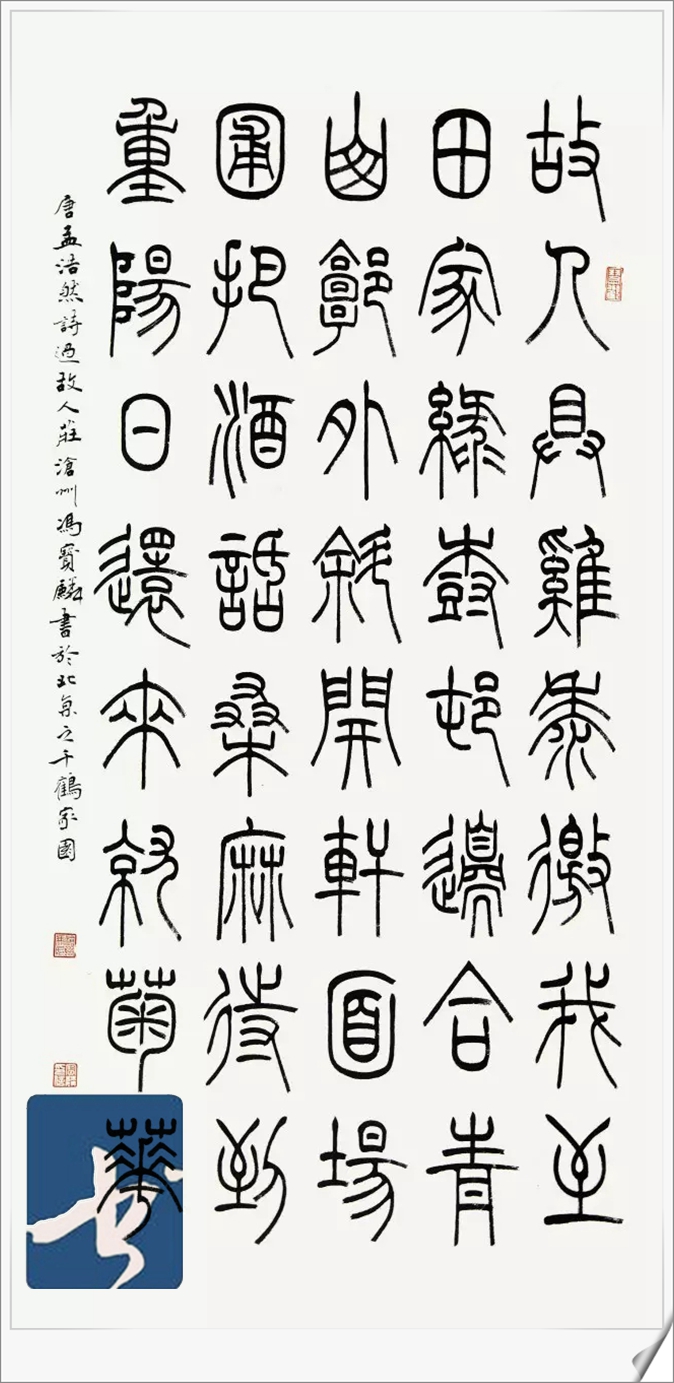 故人具雞黍徼我至
田家綠尌邨邊合青
山郭外斜開軒面場
圃把酒話桑麻待到
重陽日還來就菊華
唐孟浩然詩過故人莊滄州馮寶麟書於北京之千鶴家園